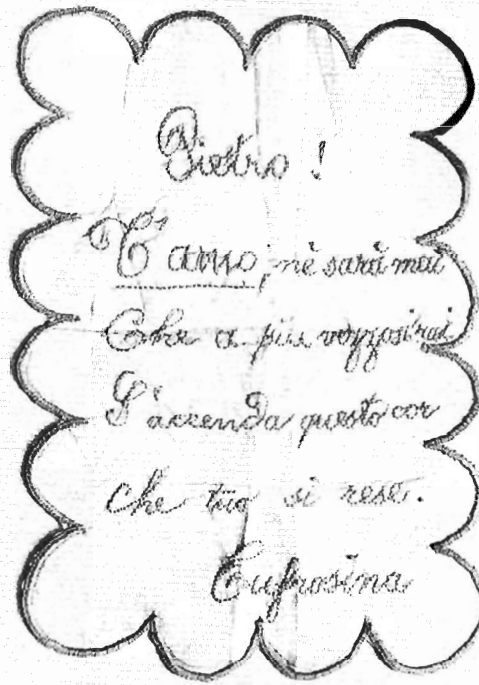 Pietro!
T'amo, nè sarà mai
Che a più vezzosi rai
S'accenda questo cor
che tuo si rese.
Eufrosina